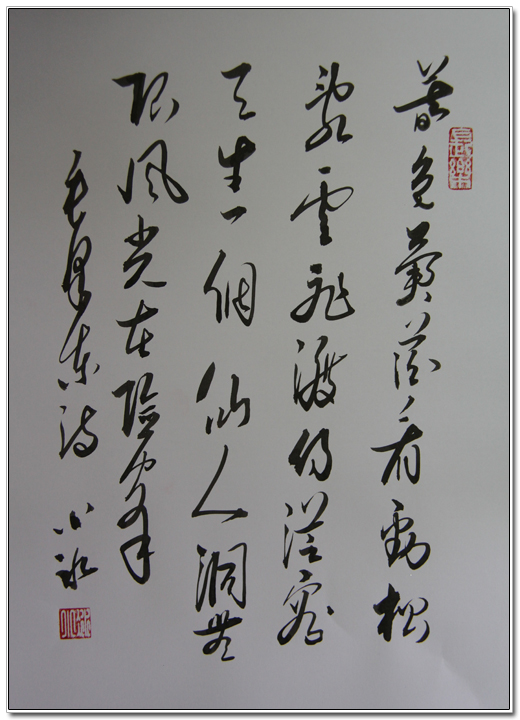 暮色蒼茫看勁松
亂雲飛渡仍從容
天生一個仙人洞無
限風光在險峯
毛澤東詩
長樂